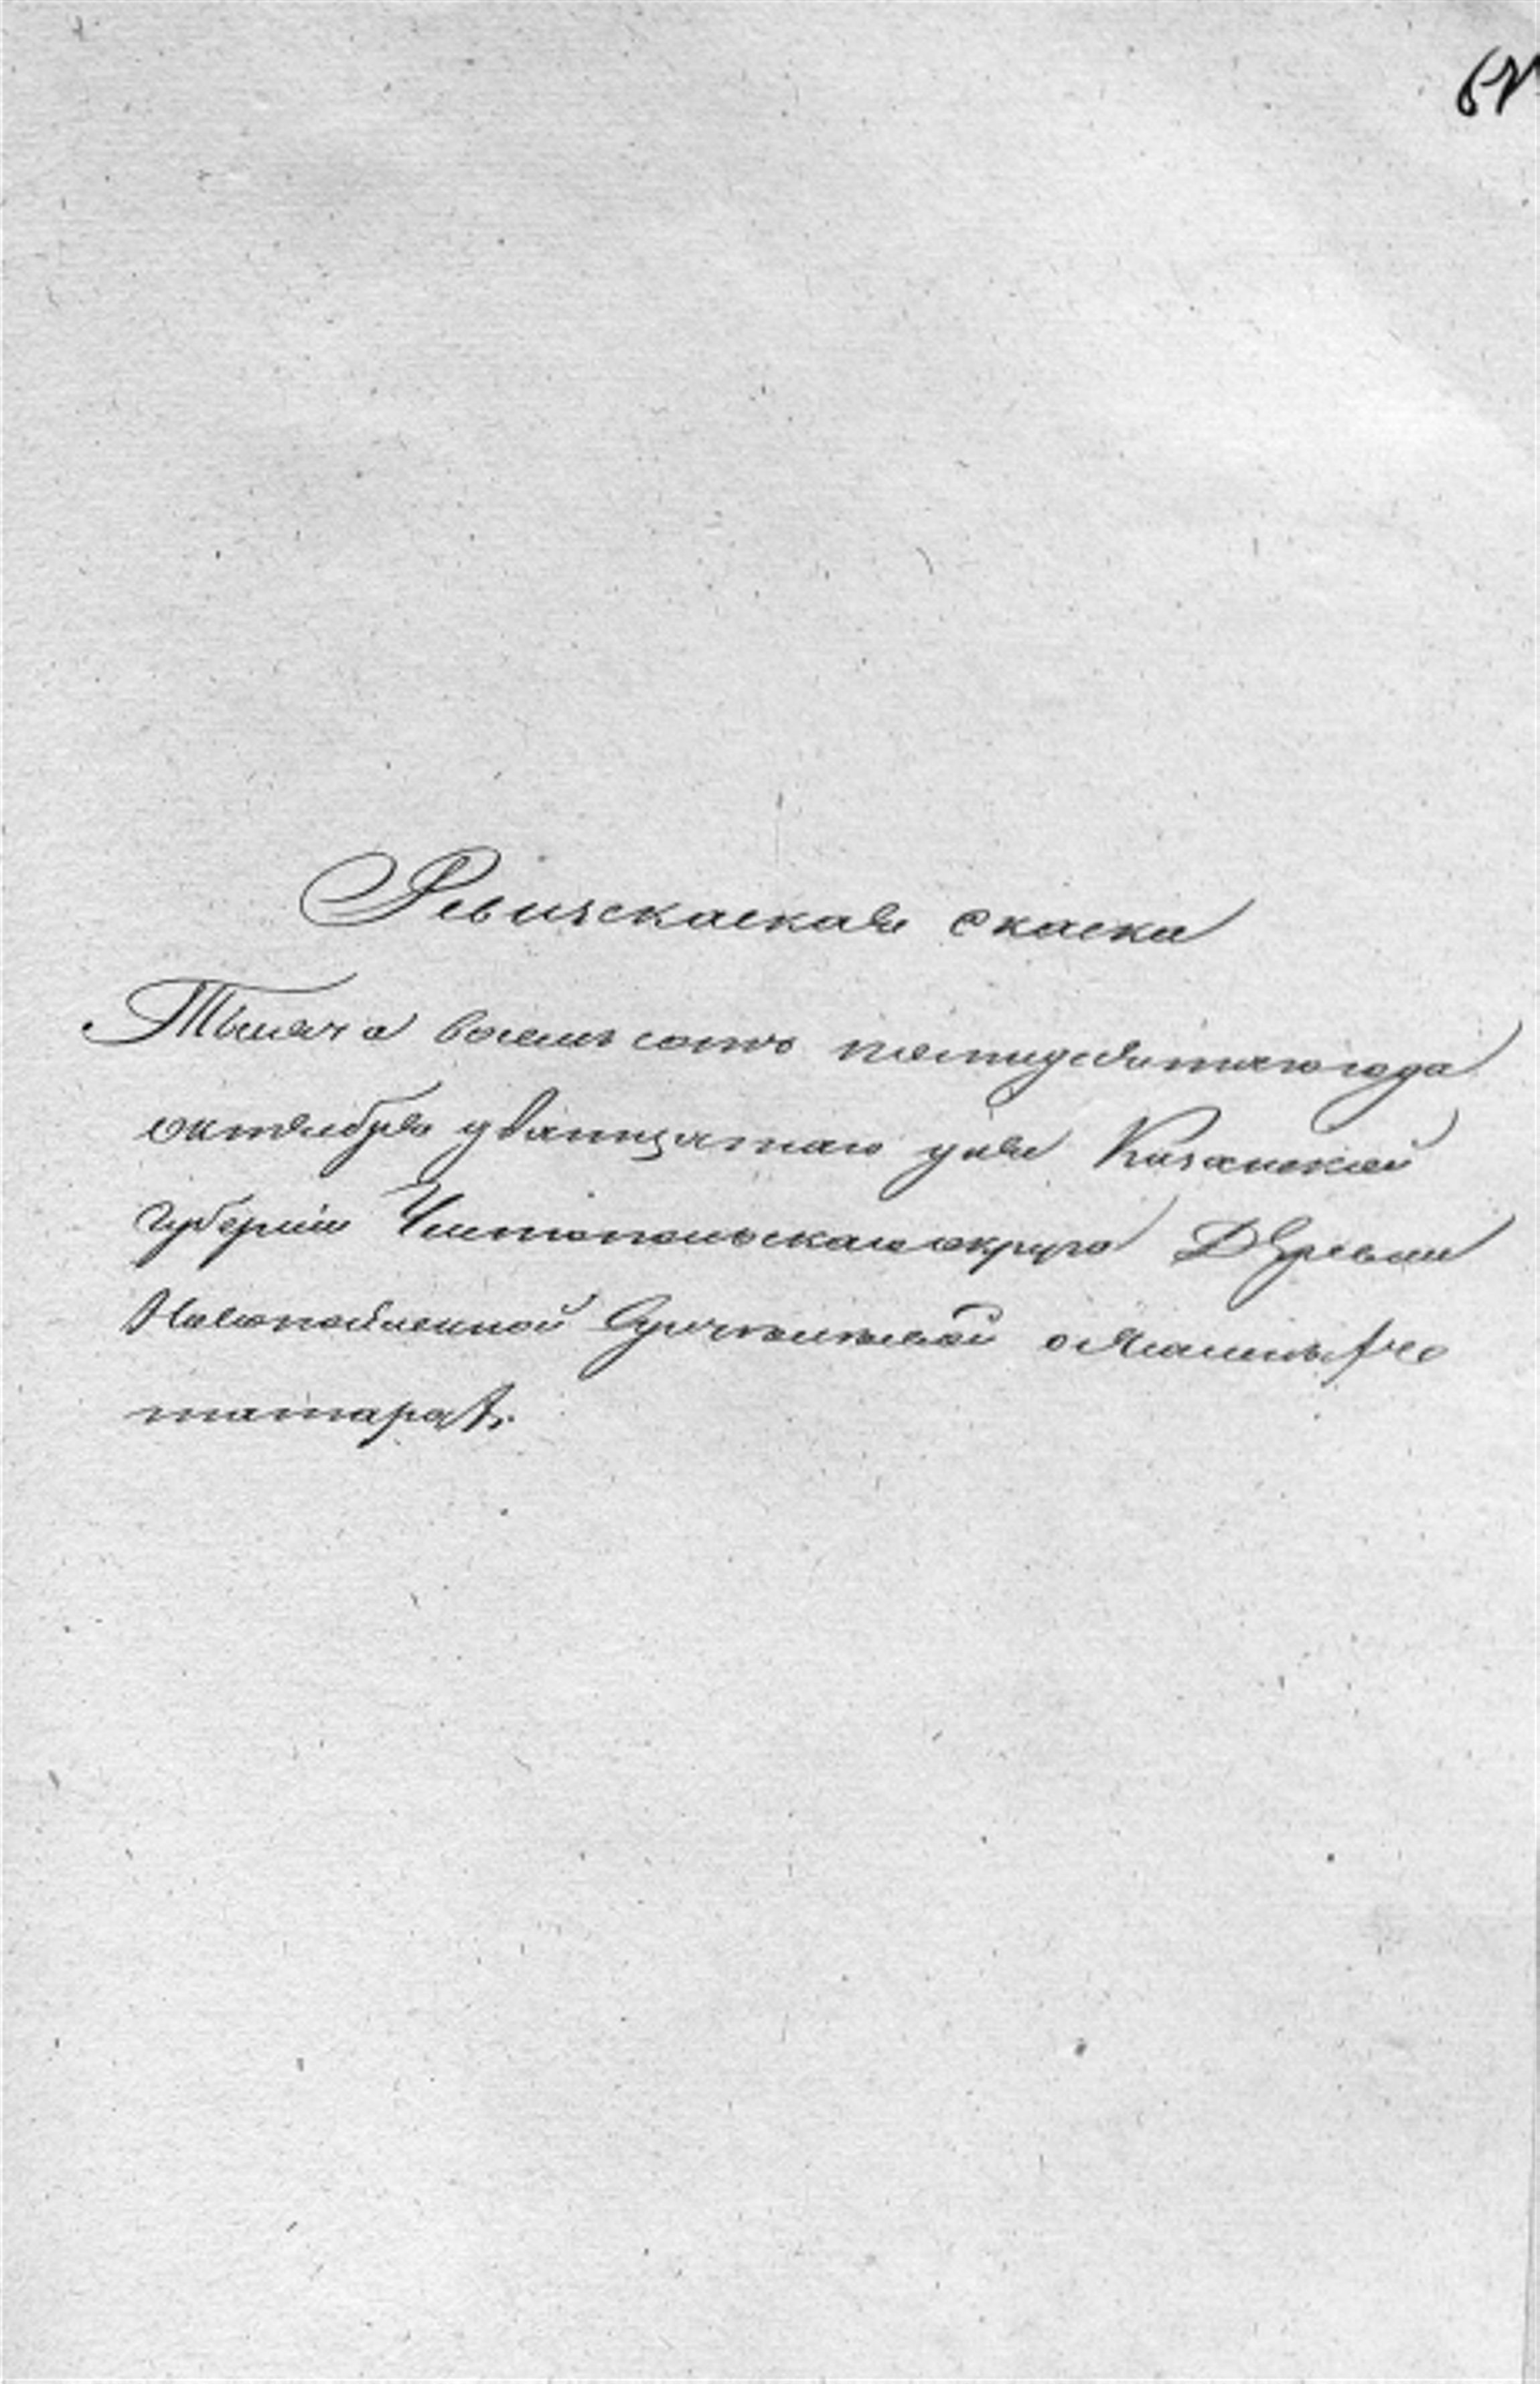 Ревижскаская скаска
Тысяча восемь сотъ пятидесятаго года
октября дватцатаго дня Казанской
губерніи Чистопольскаго округа Деревни
Новопоселенной о ясашныхъ
татарахъ.